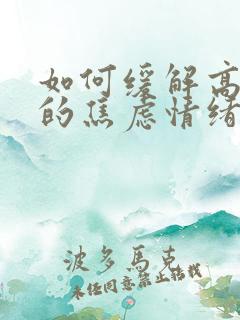 如何缓解高
的焦虑情绪
波多馬克
未经同意禁止转载